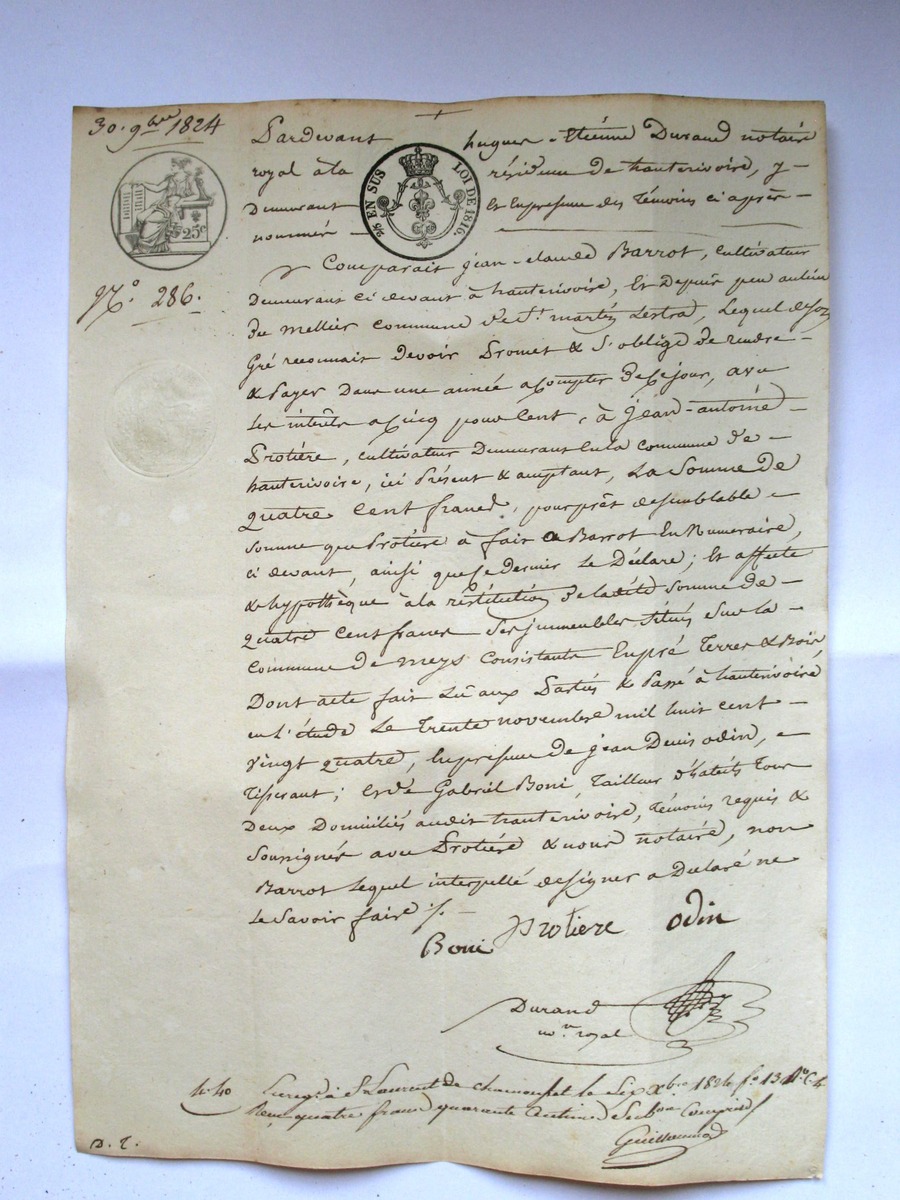 30. 9bre 1824
Pardevant hugues-Etiénne Durand notaire
royal à la résidence de hauterivoire, y
Demeurant Et Enpresence des Témoins ci après
nommés
25 EN SUS LOI DE 1816.
25c
N.o 286.
Comparait jean-claude Barrot, cultivateur
demeurant ci devant à hauterivoire, Et Depuis peu au lieu
du mellier commune de St. martin Lestra, Lequel de son
Gré reconnait devoir Promet & S'oblige de rendre
& Payer Dans une année a compter de ce jour, avec
Les intérêts a Cinq pour Cent, à jean-antoine
Protière, cultivateur Demeurant En la commune de
hauterivoire, ici Présent & acceptant, La Somme de
quatre Cent francs, pour prêt de semblable
Somme que Protière à fait a Barrot En Numeraire,
ci devant, ainsi que ce dernier Le Déclare; Et affecte
& hypothèque à la réstitution de ladite somme de
quatre Cent francs Ses jmmeubles Situés Sur la
Commune de meys Consistants En pré Terres & Bois
Dont acte fait Lû aux Partiés & Passé à hauterivoire
en l'étude Le Trente novembre mil huit cent
vingt quatre, En presence de jean Denis odin,
Tisserant; & de Gabriél Boni, Tailleur d'habits Tous
Deux Domiciliés audit hauterivoire, Témoins requis &
Soussignés avec Protière & nous notaire, non
Barrot Lequel interpellé de signer a Déclaré ne
Le Savoir faire ./.
Boni Protiere odin
Durand
no.re royal
4.40 Enreg.é à St Laurent de chamousset le Six Xbre 1824 f.o 134
Reçu quatre francs quarante Centimes Subvon Compris
Guillaumod
D. T.